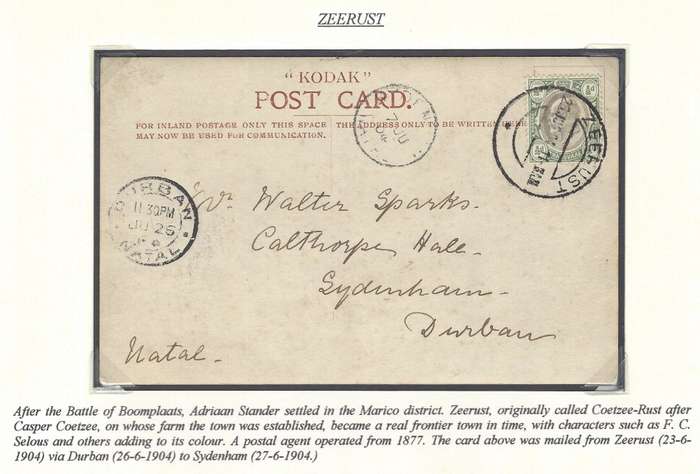 ZEERUST
"KODAK"
POST CARD.
FOR INLAND POSTAGE ONLY THIS SPACE
MAY NOW BE USED FOR COMMUNICATION.
THE ADDRESS ONLY TO BE WRITTEN HERE
ZEERUST
DURBAN
11.30PM
JU 26
NATAL
Mr Walter Sparks.
Calthorpe Hall.
Sydenham.
Durban
Natal.
After the Battle of Boomplaats, Adriaan Stander settled in the Marico district. Zeerust, originally called Coetzee-Rust after
Casper Coetzee, on whose farm the town was established, became a real frontier town in time, with characters such as F. C.
Selous and others adding to its colour. A postal agent operated from 1877. The card above was mailed from Zeerust (23-6-
1904) via Durban (26-6-1904) to Sydenham (27-6-1904.)